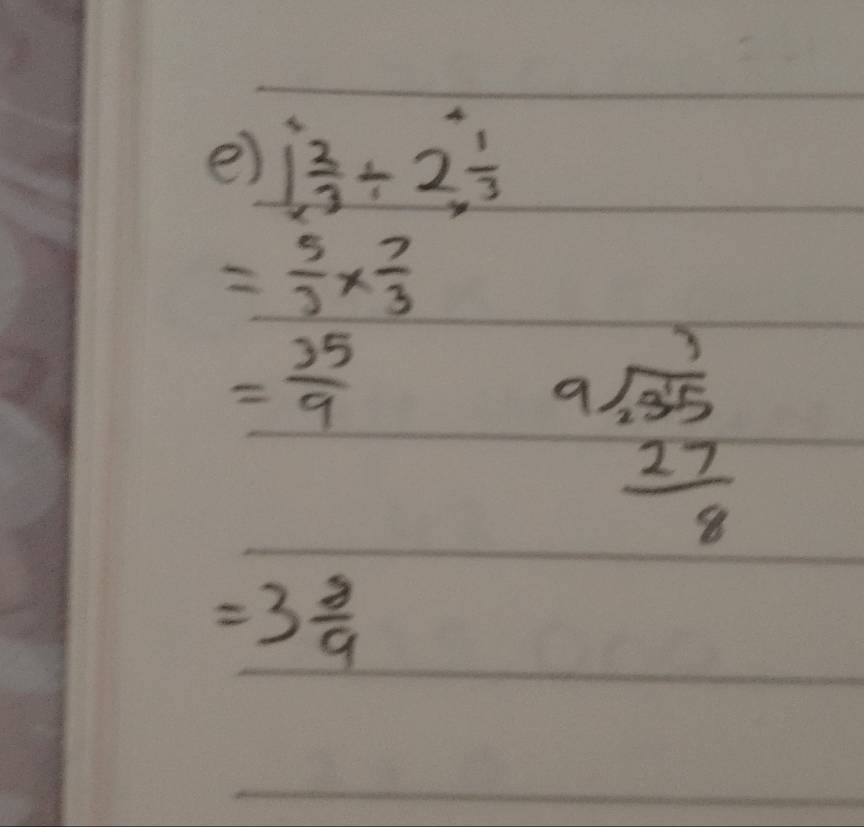 e) 1 2/3 ÷ 2 1/3
= 5/3 × 7/3
= 35/9
3
9√35
27
8
= 3 8/9